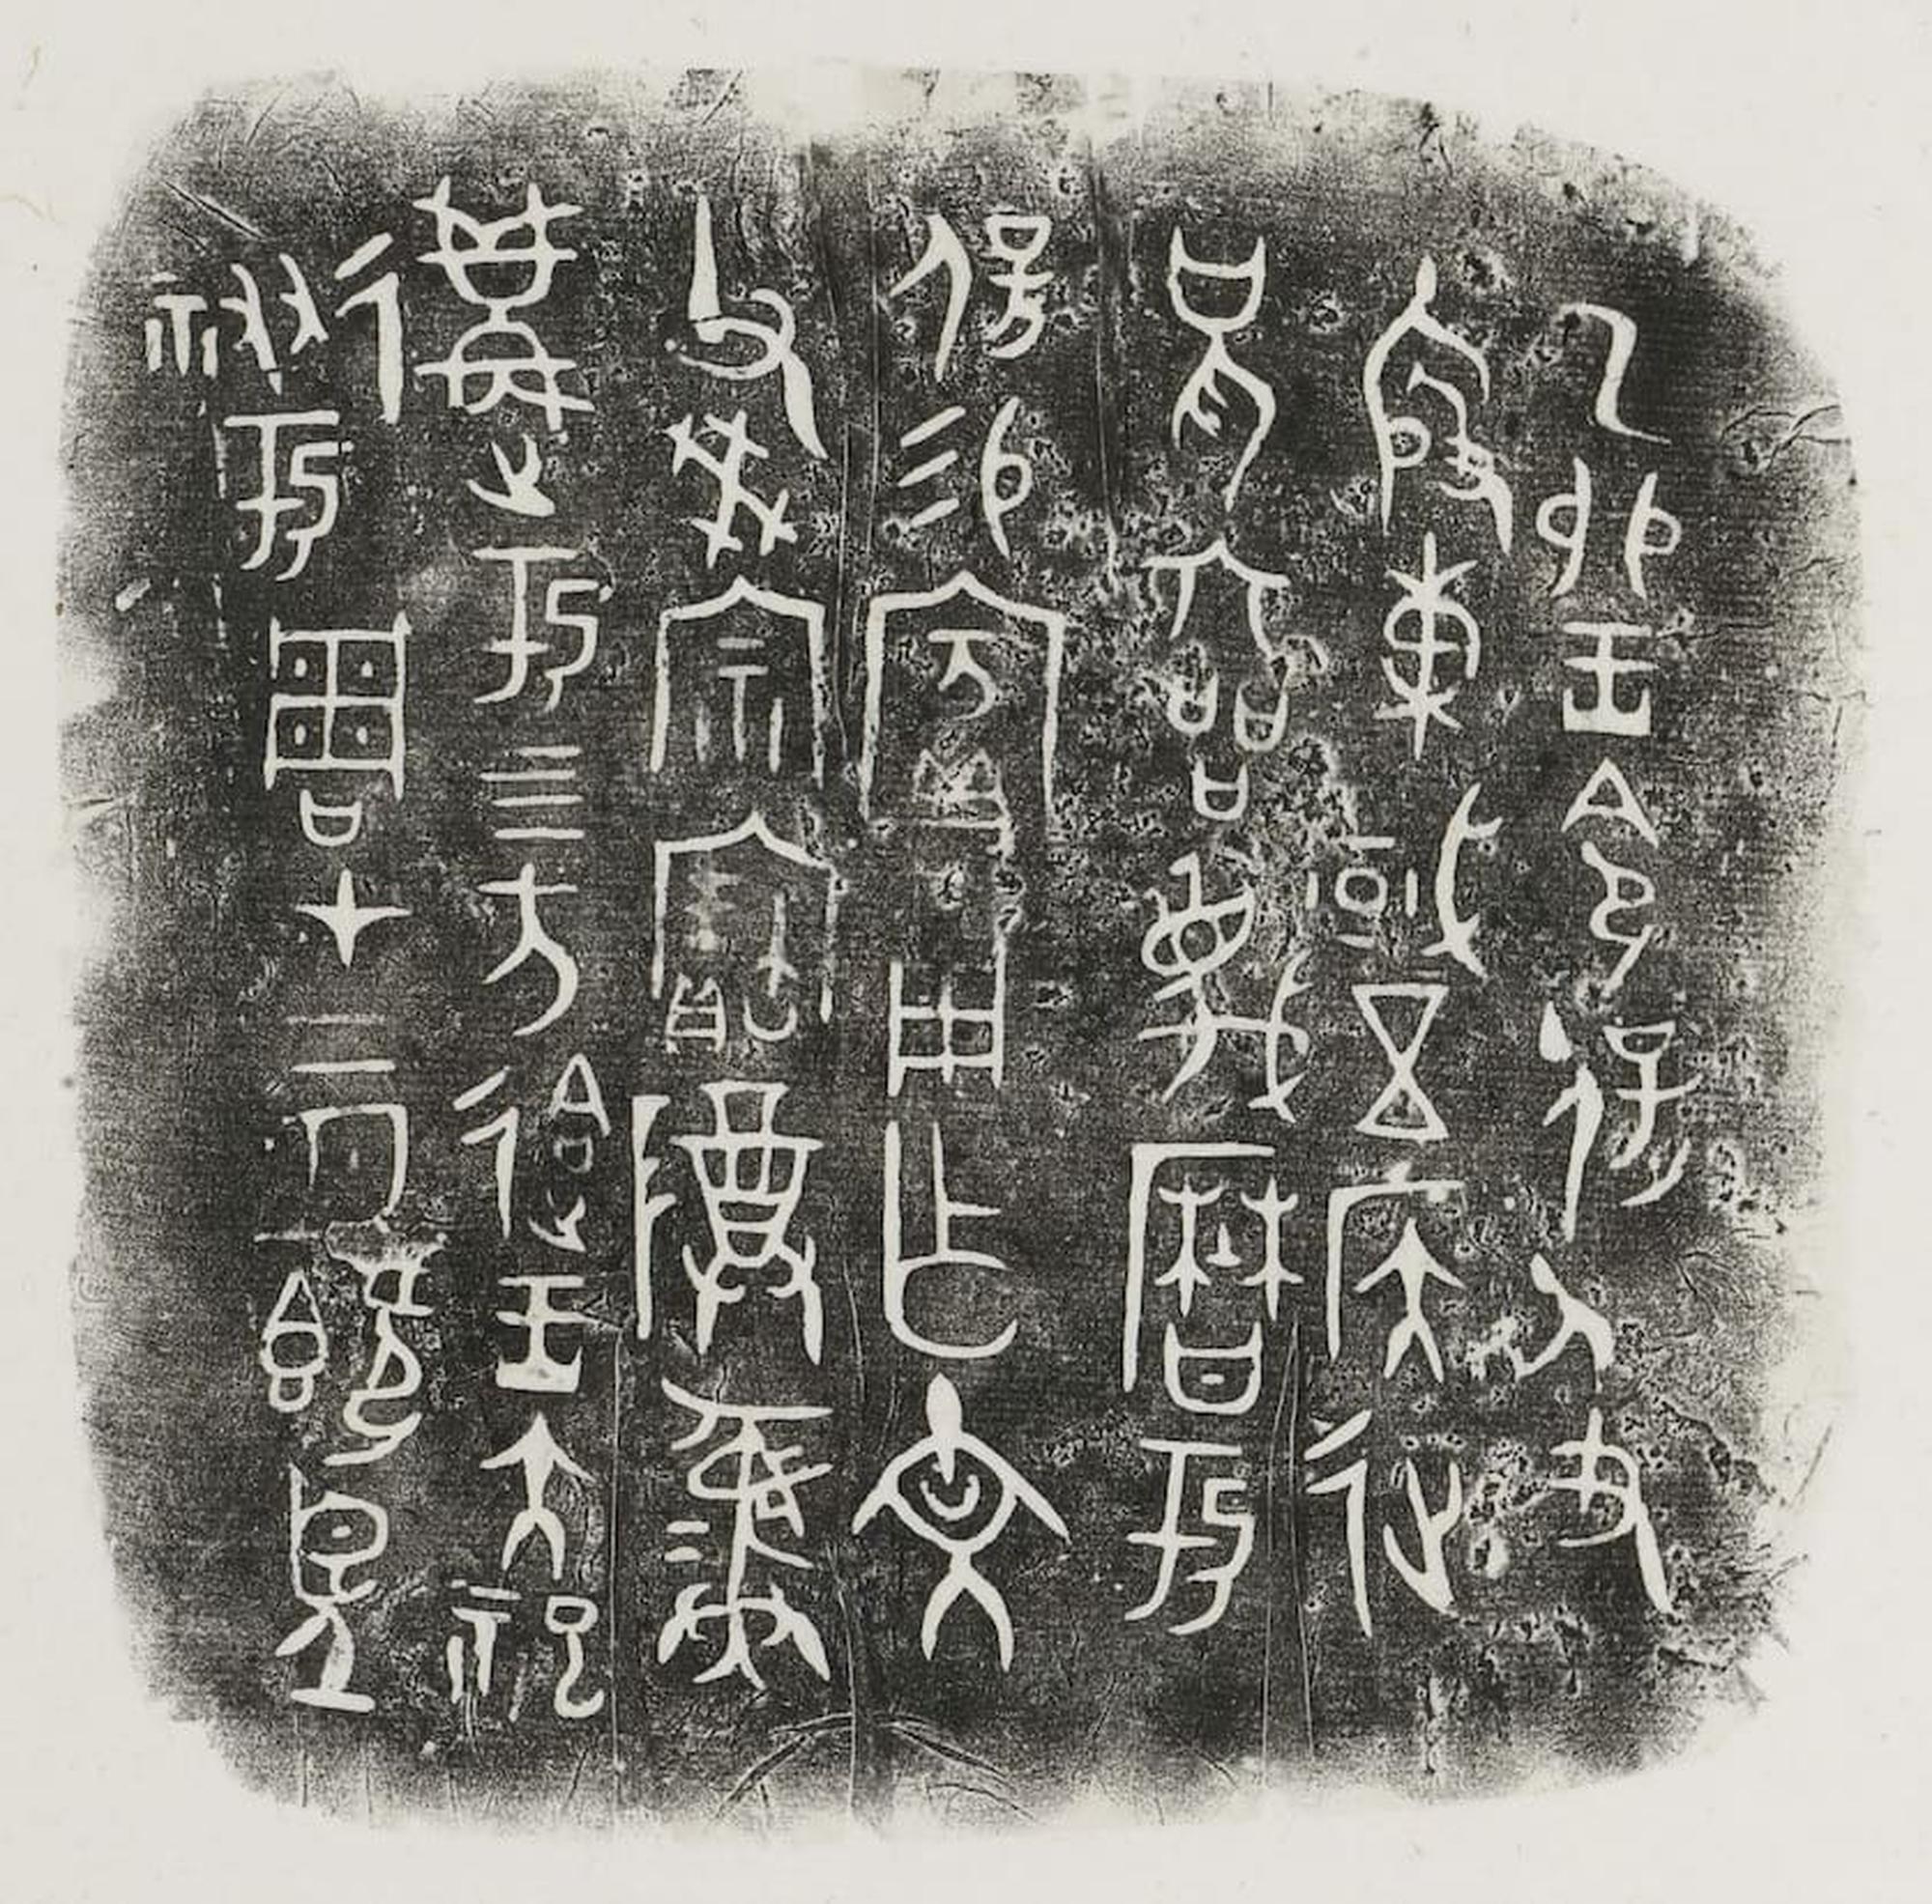 乙卯王令保及
殷東或五侯𢓊
兄六品蔑曆于
保易賓用乍文
父癸宗寶𬯚彝
遘于四方𢓜王大祀
祓于周才二月既望